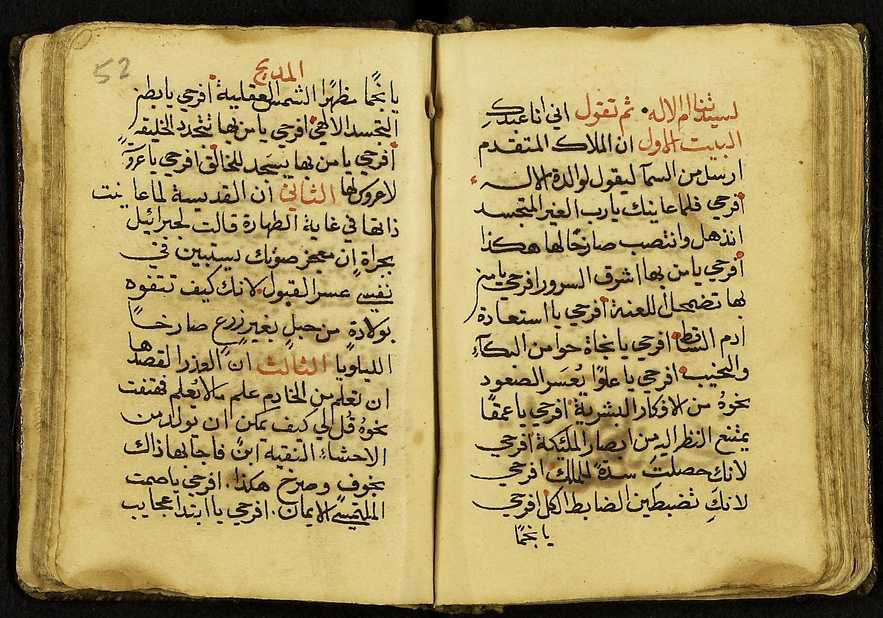 لسيدتنا ام الاله. ثم تقول اني انا عبدكِ
البيت الاول ان الملاك المتقدم
ارسل من السمآ ليقول لوالدة الاله
افرحي فلما عاينك يارب الغير المتجسد
انذهل وانتصب صارخًا لها هكذا
افرحي يا من بها اشرق السرور افرحي يا من
بها تضمحل اللعنة افرحي يا استعادة
ادم الساقط افرحي يا نجاة حوا من البكآءِ
والنحيب افرحي يا علوًا يُعسَر الصعود
نحوهُ من الافكار البشرية افرحي يا عمقًا
يمتنع النظر اليه من ابصار الملئكة افرحي
لانكِ حصلتِ سدةً للملك افرحي
لانكِ تضبطين الضابط الكل افرحي
يا نجمًا
52
المديح
يا نجمًا مظهرًا الشمس العقلية افرحي يا بطن
التجسد الالاهي افرحي يا من بها تتجدد الخليقه
افرحي يا من بها يسجد للخالق افرحي يا عروسًا
لا عروس لها الثاني ان القديسة لما عاينت
ذاتها في غاية الطهارة قالت لجبرائيل
بجراة ان معجز صوتك يستبين في
نفسي عسر القبول لانك كيف تتفوه
بولادةٍ من حبلٍ بغير زرعٍ صارخًا
اللياويا الثالث ان العذرا لقصدها
ان تعلم من الخادم علم ما لا يُعلم فهتفت
نحوهُ قُل لي كيف يمكن ان يولد من
الاحشاءِ النقيه ابنٌ فاجابها ذاك
بخوف وصرخ هكذا. افرحي يا صمت
الملتمسي الايمان. افرحي يا ابتدا عجايب